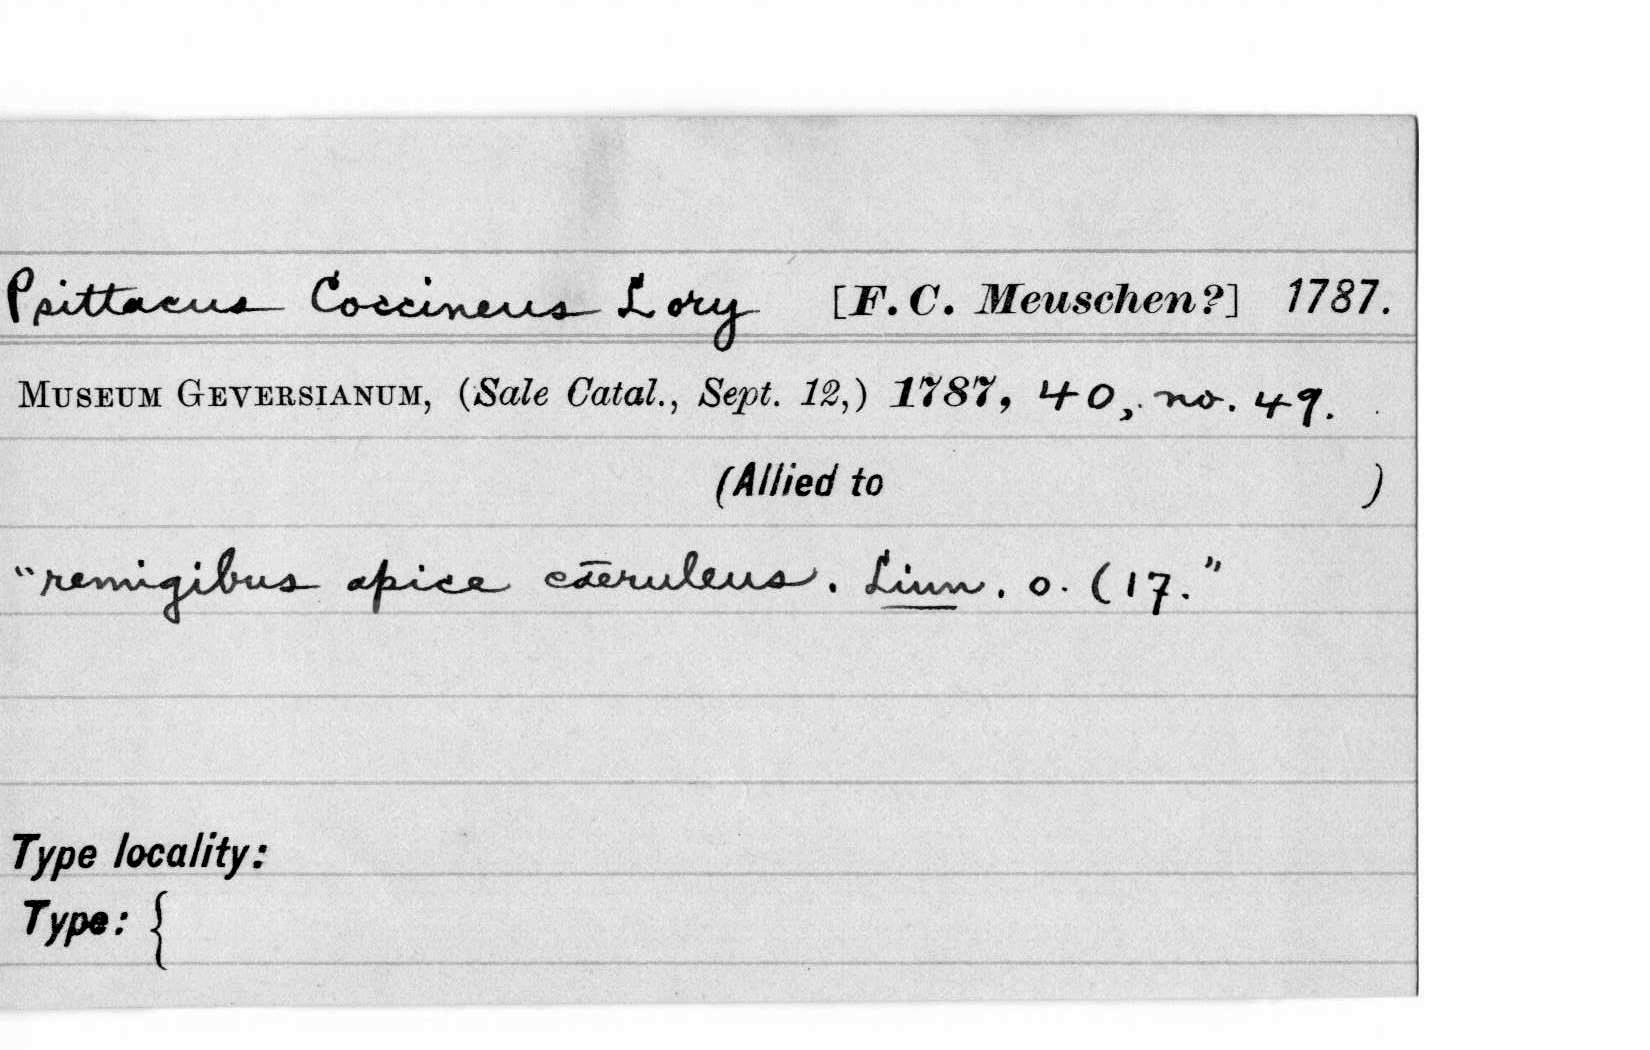 Psittacus Coccineus Lory [F. C. Meuschen?] 1787.
MUSEUM GEVERSIANUM, (Sale Catal., Sept. 12,) 1787, 40, no. 49.
(Allied to )
"remigibus apice cæruleus. Linn. o. (17."
Type locality:
Type: {